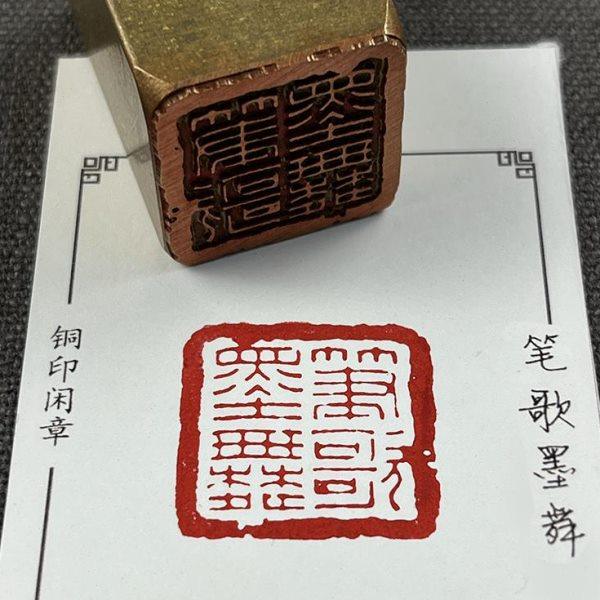 笔歌墨舞
筆歌
墨舞
铜印闲章